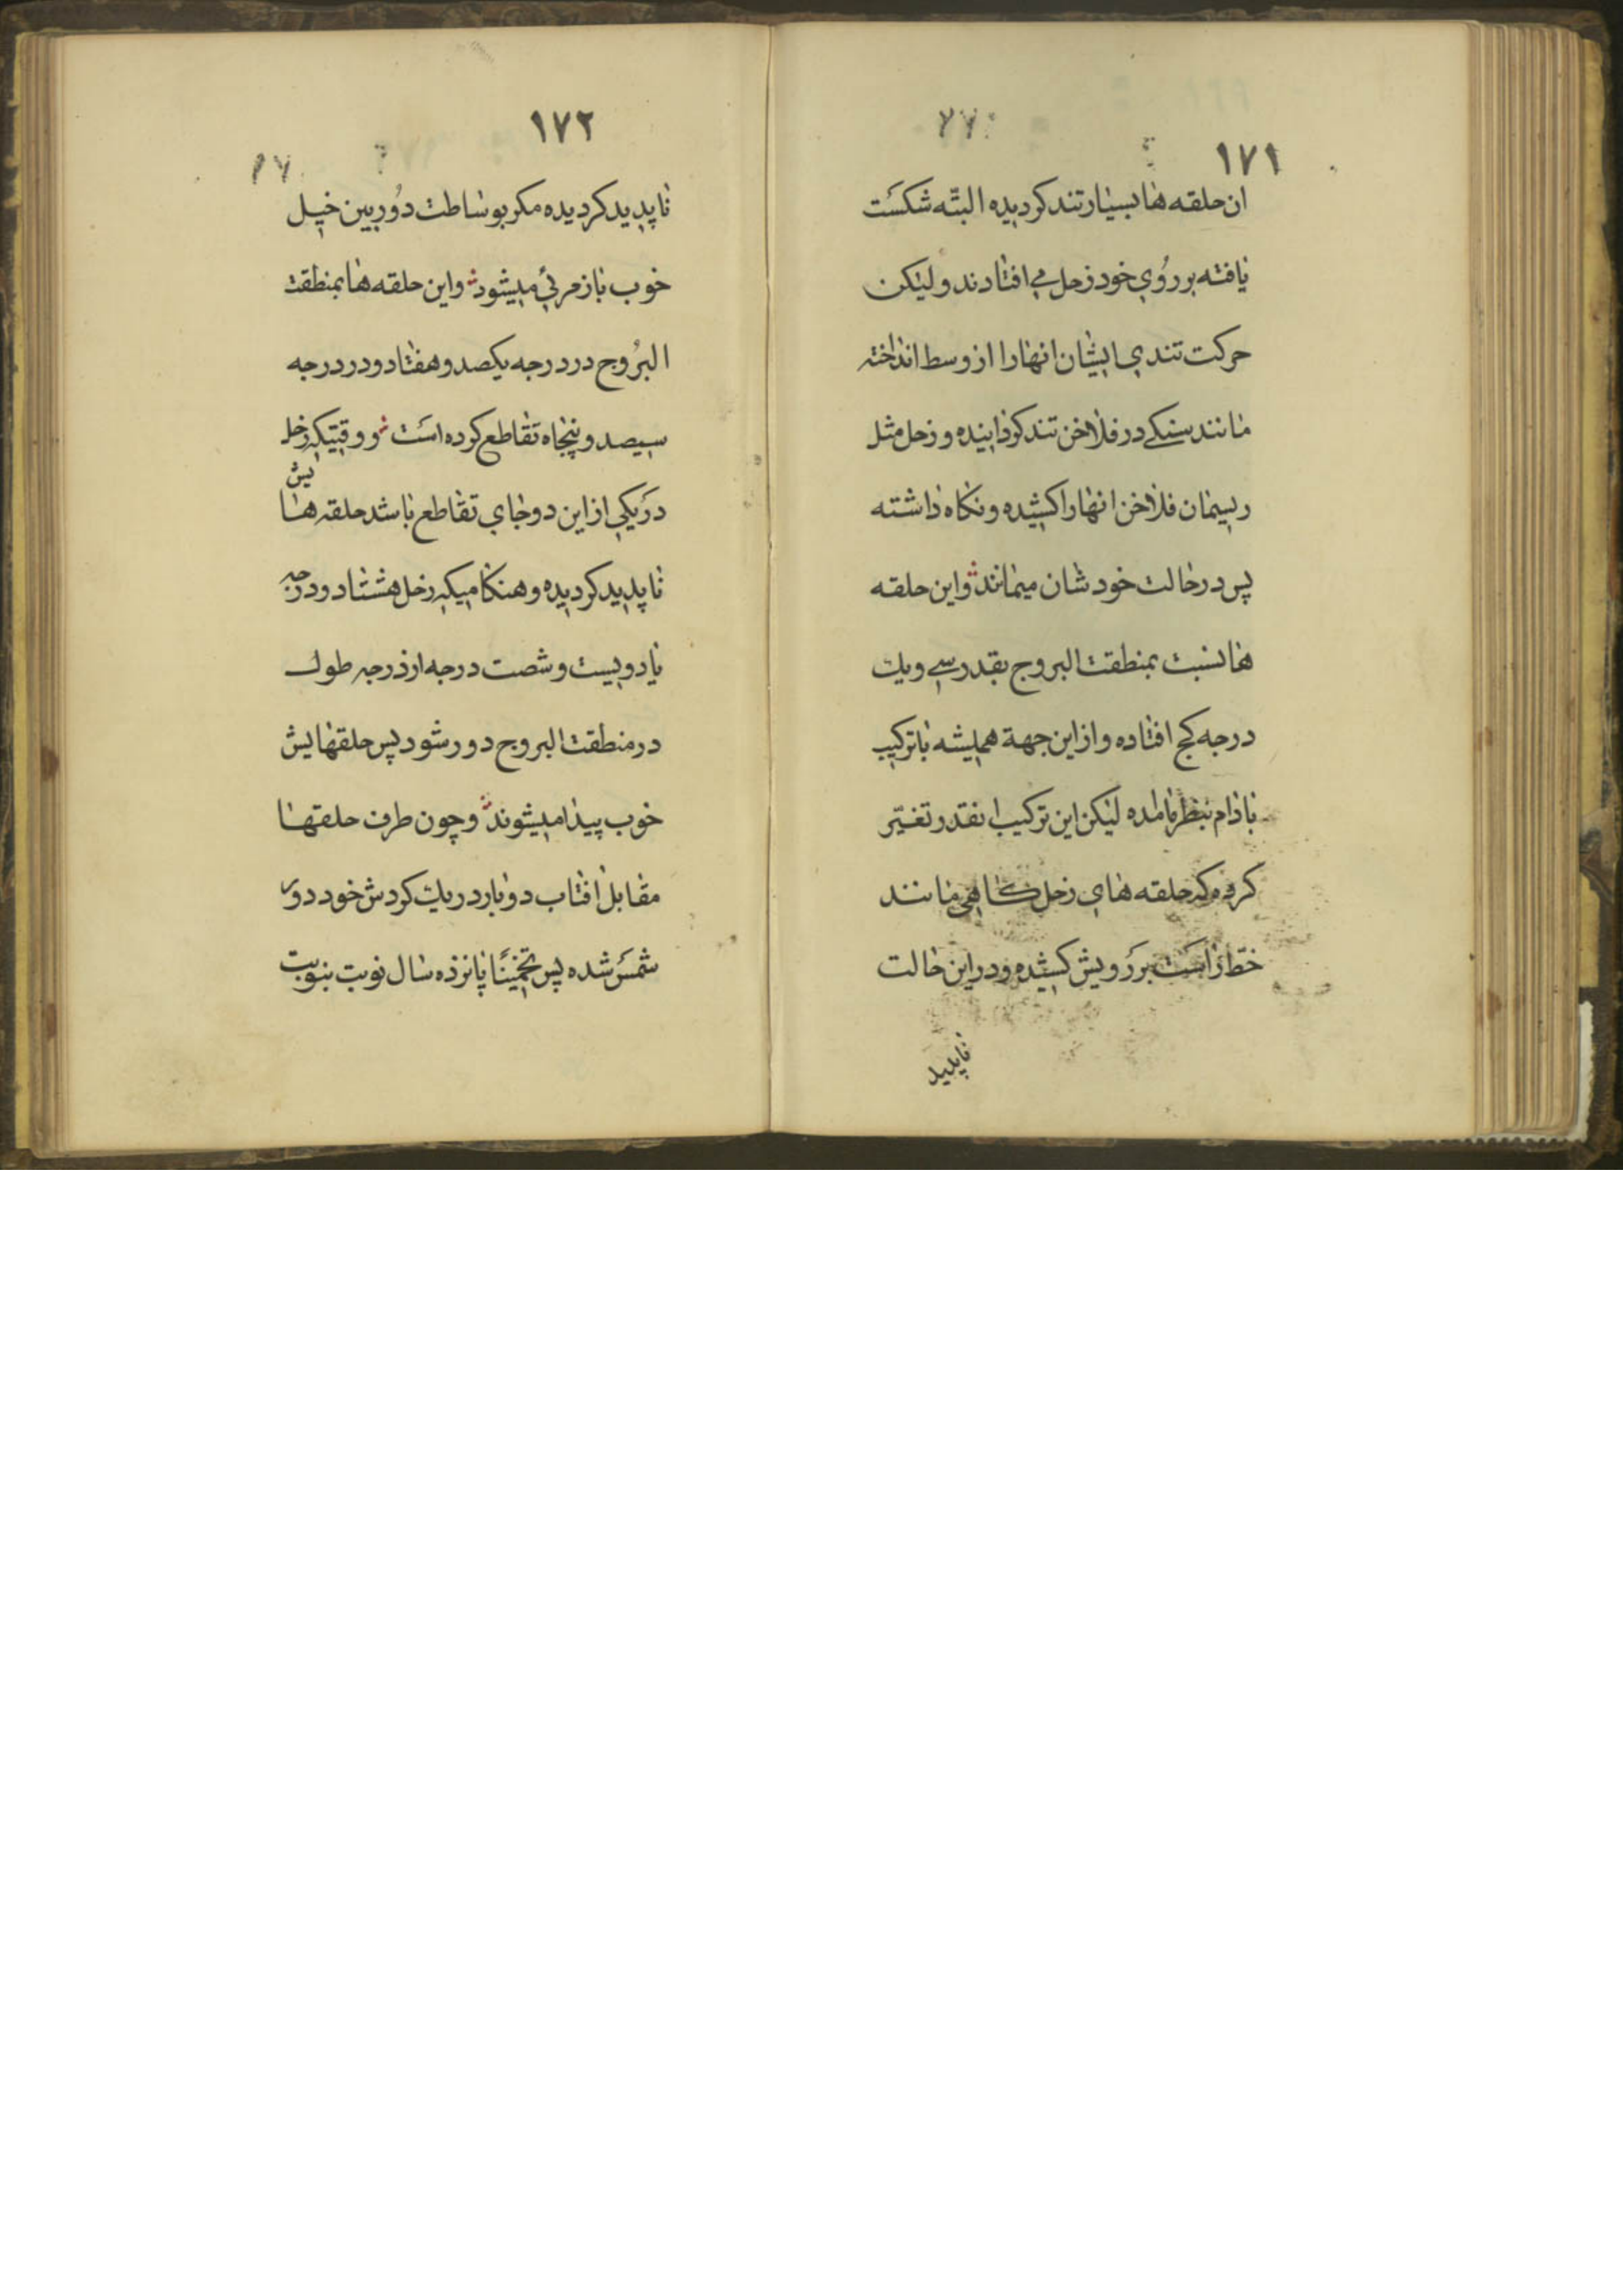 ١٧١
ان حلقه ها بسیار تند کردیده البتّه شکست
یافته بر رُوي خود زحل مے افتادند و لیکن
حرکت تندي ایشان انها را از وسط انداخته
مانند سنکے در فلاخن تند کردانیده و زحل مثل
ریسمان فلاخن انها را کشیده و نکاه داشته
پس در حالت خودشان میمانند و این حلقه
ها نسبت بمنطقت البروج بقدر سے و یك
درجه کج افتاده و از این جهة همیشه باترکیب
بادام بنظر نامده لیکن این ترکیب انقدر تغیّر
کرده که حلقه هاي زحل کاهي مانند
خطّ راست بر رویش کشیده و در این حالت
ناپدید
١٧٢
ناپدید کردیده مکر بوساطت دُوربین خیل
خوب باز مرئي میشود و این حلقه ها بمنطقت
البرُوج در درجه یکصد و هفتاد و در درجه
سیصد و پنجاه تقاطع کرده است و وقتیکه زحل
در یکي از این دو جاي تقاطع باشد حلقه هایش
ناپدید کردیده و هنکامیکه زحل هشتاد درجه
یا دویست و شصت درجه از درجه طول
در منطقت البروج دور شود پس حلقهایش
خوب پیدا میشوند و چون طرف حلقها
مقابل افتاب دوبار در یك کردش خود دور
شمس شده پس تخمینًا پانزده سال نوبت بنوبت